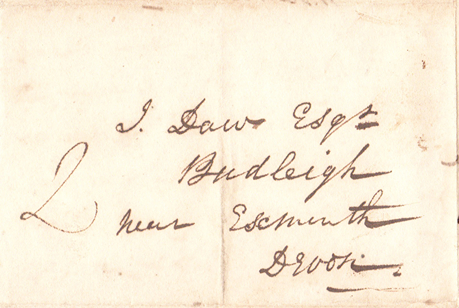 J. Daw Esqr
Budleigh
2
near Exmouth
Devon